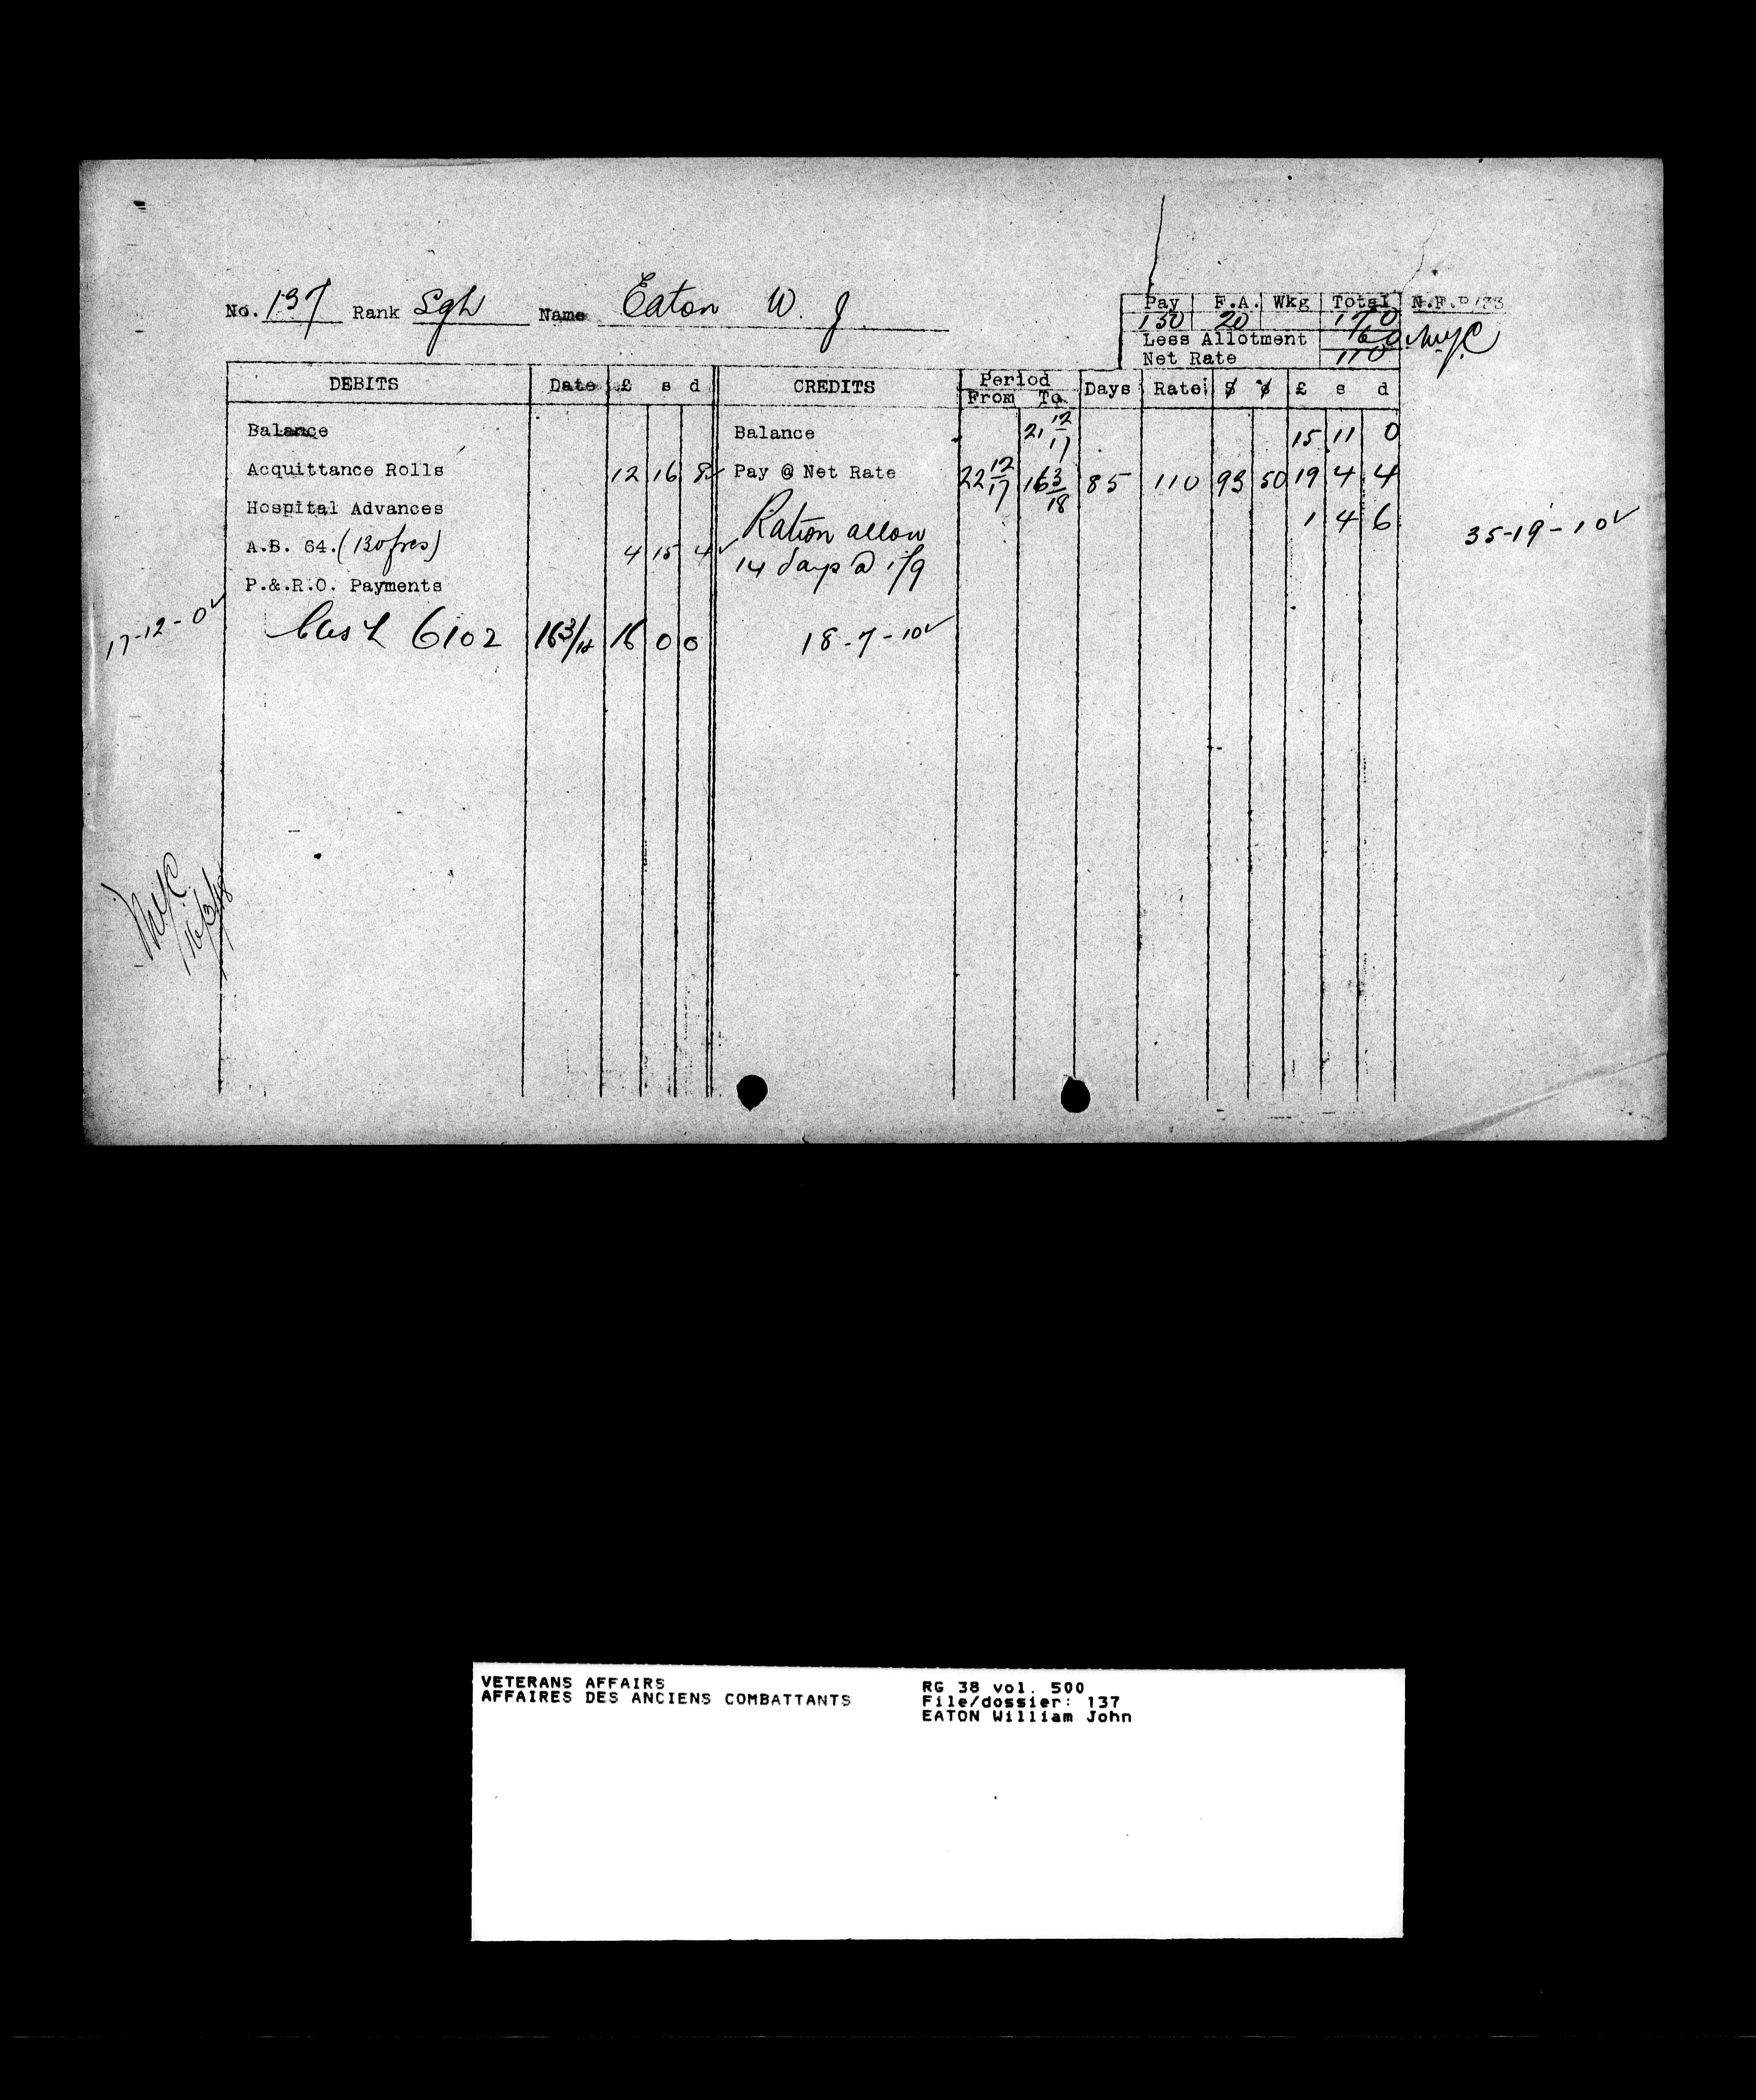 No. 137 Rank Sgt Name Eaton W. J.
Pay F.A. Wkg Total N.F.P/33
150 20 170
Less Allotment 60
Net Rate 110
DEBITS Date £ s d CREDITS Period From To Days Rate $ ¢ £ s d
Balance Balance 21 12/17 15 11 0
Acquittance Rolls 12 16 8 Pay @ Net Rate 22 12/17 16 3/18 85 110 93 50 19 4 4
Hospital Advances Ration allow 1 4 6
35-19-10 ✓
A.B. 64. (130 frcs) 4 15 4 ✓ 14 days @ 1/9
P.&.R.O. Payments
17-12-0 ✓
Cash 6102 16 3/18 16 0 0 18-7-10 ✓
16/3/18
VETERANS AFFAIRS
AFFAIRES DES ANCIENS COMBATTANTS
RG 38 vol. 500
File/dossier: 137
EATON William John